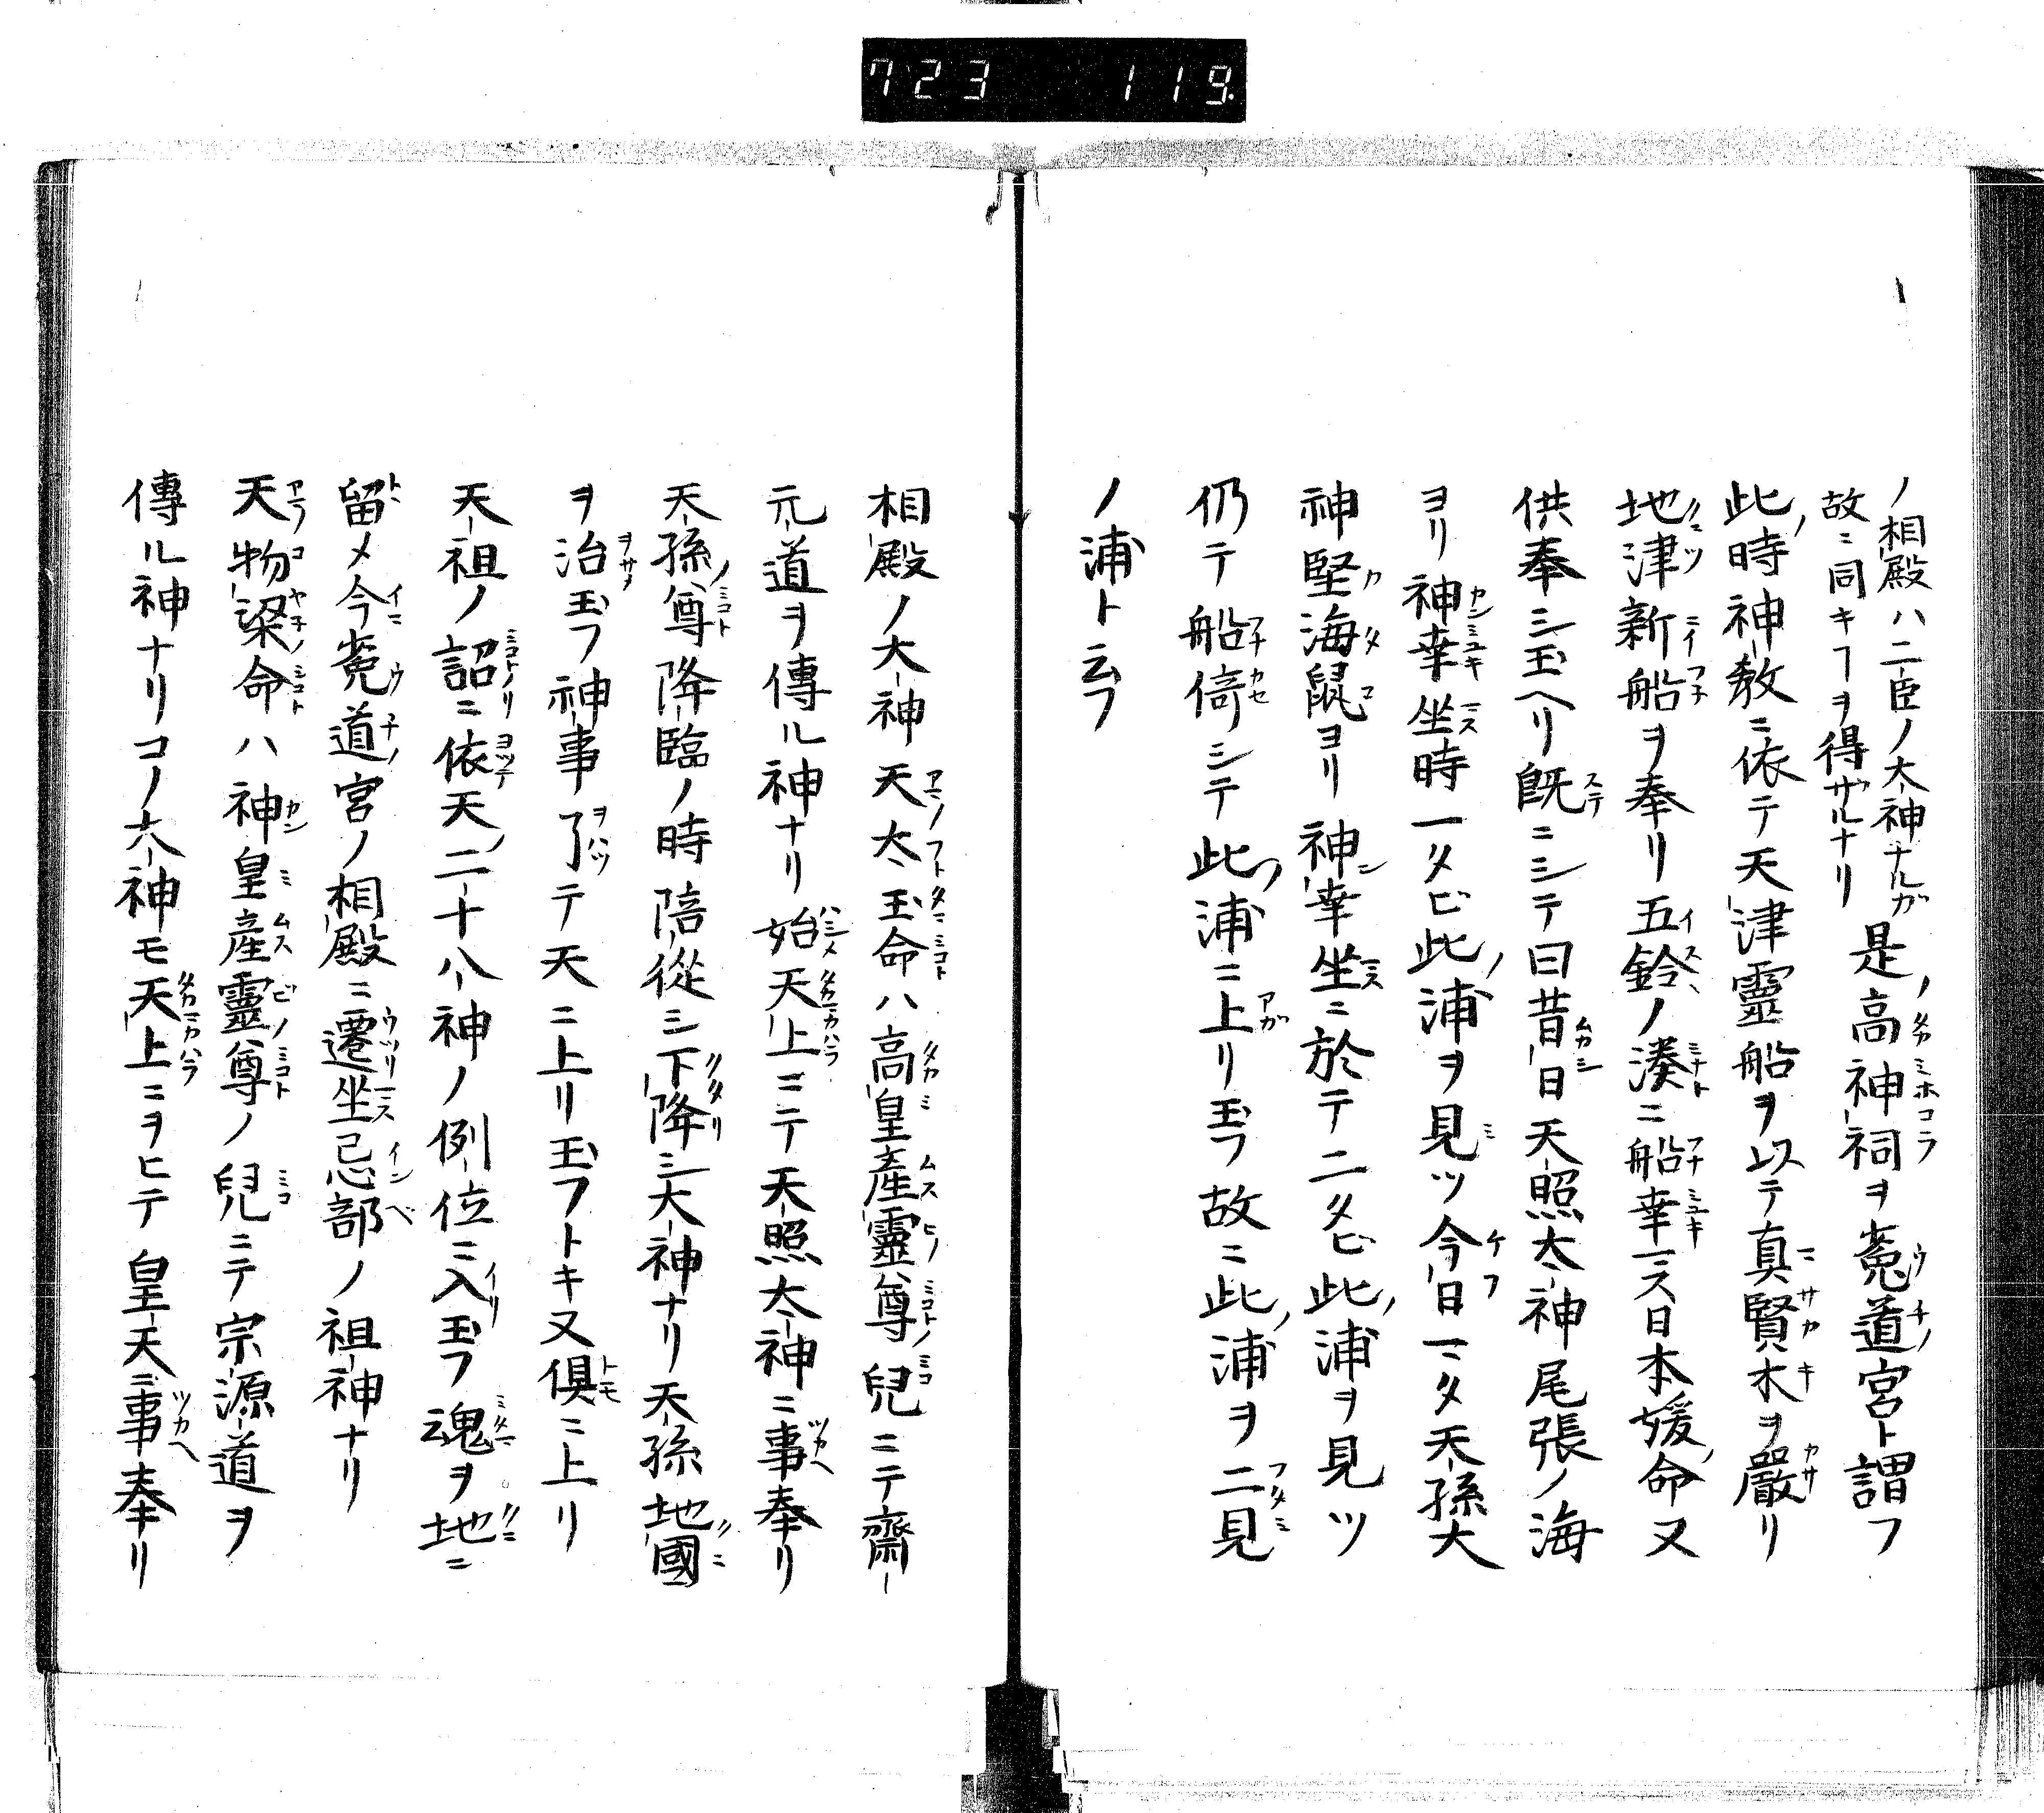 723 119.
ノ相殿ハ二臣ノ大神ナルガ
故ニ同キヿヲ得サルナリ 是高神祠ヲ菟道宮ト謂フ
此時神教ニ依テ天津靈船ヲ以テ真賢木ヲ嚴リ
地津新船ヲ奉リ五鈴ノ湊ニ船幸マス日本媛命又
供奉シ玉ヘリ既ニシテ曰昔日天照太神尾張ノ海
ヨリ神幸坐時一タビ此浦ヲ見ツ今日マタ天孫大
神堅海鼠ヨリ神幸坐ニ於テ二タビ此浦ヲ見ツ
仍テ船倚シテ此浦ニ上リ玉フ故ニ此浦ヲ二見
ノ浦ト云フ
相殿ノ大神天太玉命ハ高皇産靈尊ノ兒ニテ齋
元道ヲ傳ル神ナリ始天上ニテ天照太神ニ事奉リ
天孫尊降臨ノ時陪從シ下降シ大神ナリ天孫地國
ヲ治玉フ神事了テ天ニ上リ玉フトキ又倶ニ上リ
天祖ノ詔ニ依天二十八神ノ例位ニ入玉フ魂ヲ地ニ
留メ今菟道宮ノ相殿ニ遷坐忌部ノ祖神ナリ
天物梁命ハ神皇産靈尊ノ兒ニテ宗源道ヲ
傳ル神ナリコノ大神モ天上ニヲヒテ皇天ニ事奉リ